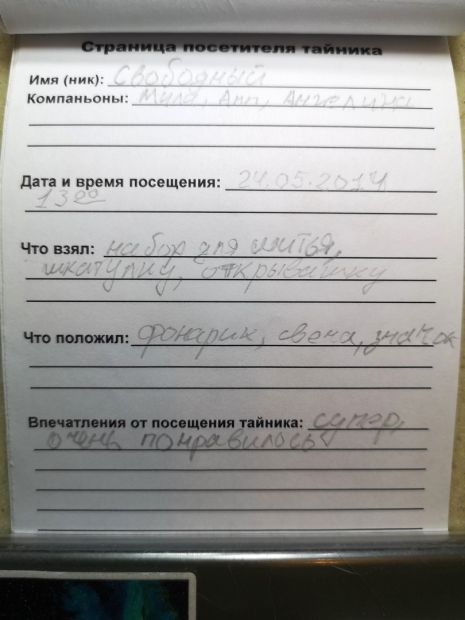 Страница посетителя тайника
Имя (ник): Свободный
Компаньоны: Мила, Анжелика
Дата и время посещения: 24.05.2014
13 00
Что взял: набор для шитья,
шкатулку, открывашку
Что положил: фонарик, свеча, значок
Впечатления от посещения тайника: супер,
очень понравилось